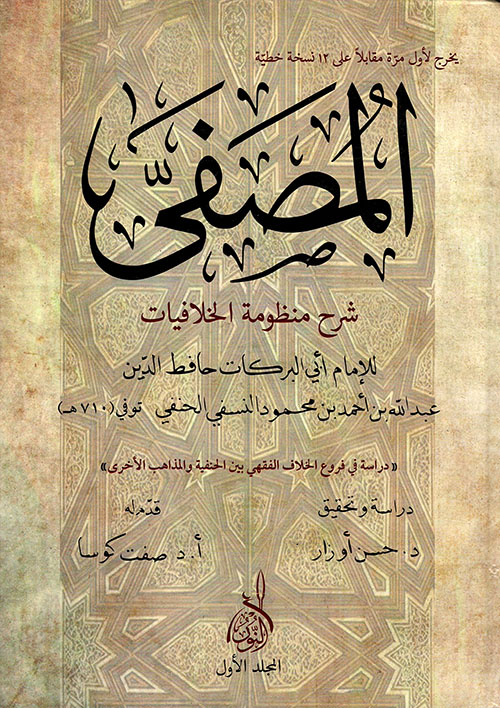 يخرج لأول مرّة مقابلاً على ١٢ نسخة خطيّة
المُصَفَّى
شرح منظومة الخلافيات
للإمام أبي البركات حافظ الدّين
عبدالله بن أحمد بن محمود النسفي الحنفي توفي (٧١٠ هـ)
«دراسة في فروع الخلاف الفقهي بين الحنفية والمذاهب الأخرى»
دراسة وتحقيق
د. حسن أوزار
قدّم له
أ.د صفت كوسا
النُّور
المجلد الأول